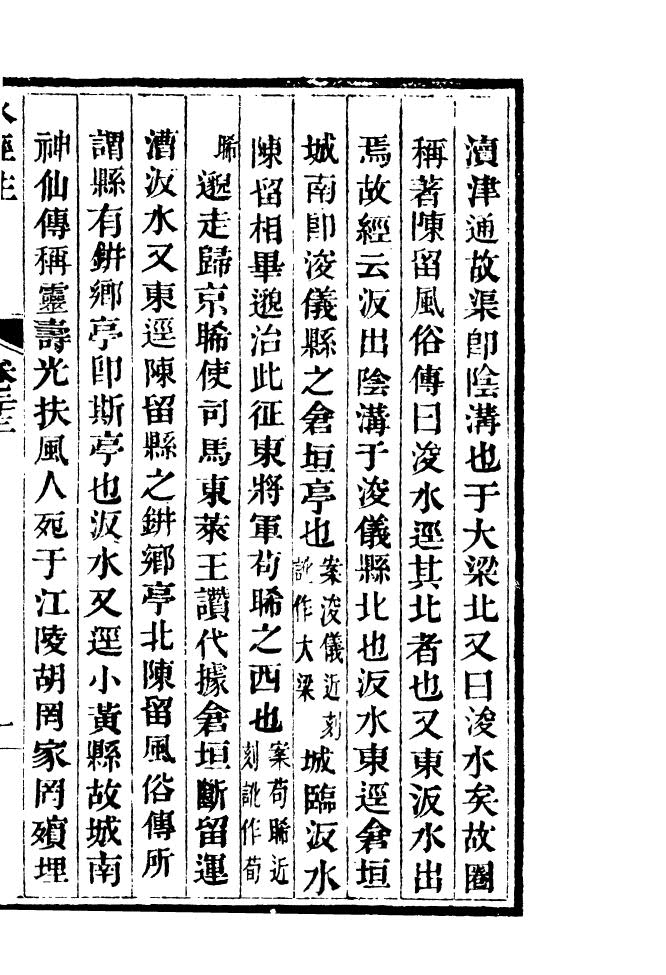 瀆津通故渠卽陰溝也于大梁北又曰浚水矣故圈
稱著陳留風俗傳曰浚水逕其北者也又東汳水出
焉故經云汳出陰溝于浚儀縣北也汳水東逕倉垣
城南卽浚儀縣之倉垣亭也案浚儀近刻訛作大梁城臨汳水
陳留相畢邈治此征東將軍荀晞之西也案荀晞近刻訛作荀
晞邈走歸京晞使司馬東萊王讚代據倉垣斷留運
漕汳水又東逕陳留縣之鉼鄉亭北陳留風俗傳所
謂縣有鉼鄉亭卽斯亭也汳水又逕小黃縣故城南
神仙傳稱靈壽光扶風人死于江陵胡罔家罔殯埋
水經注
卷二十三